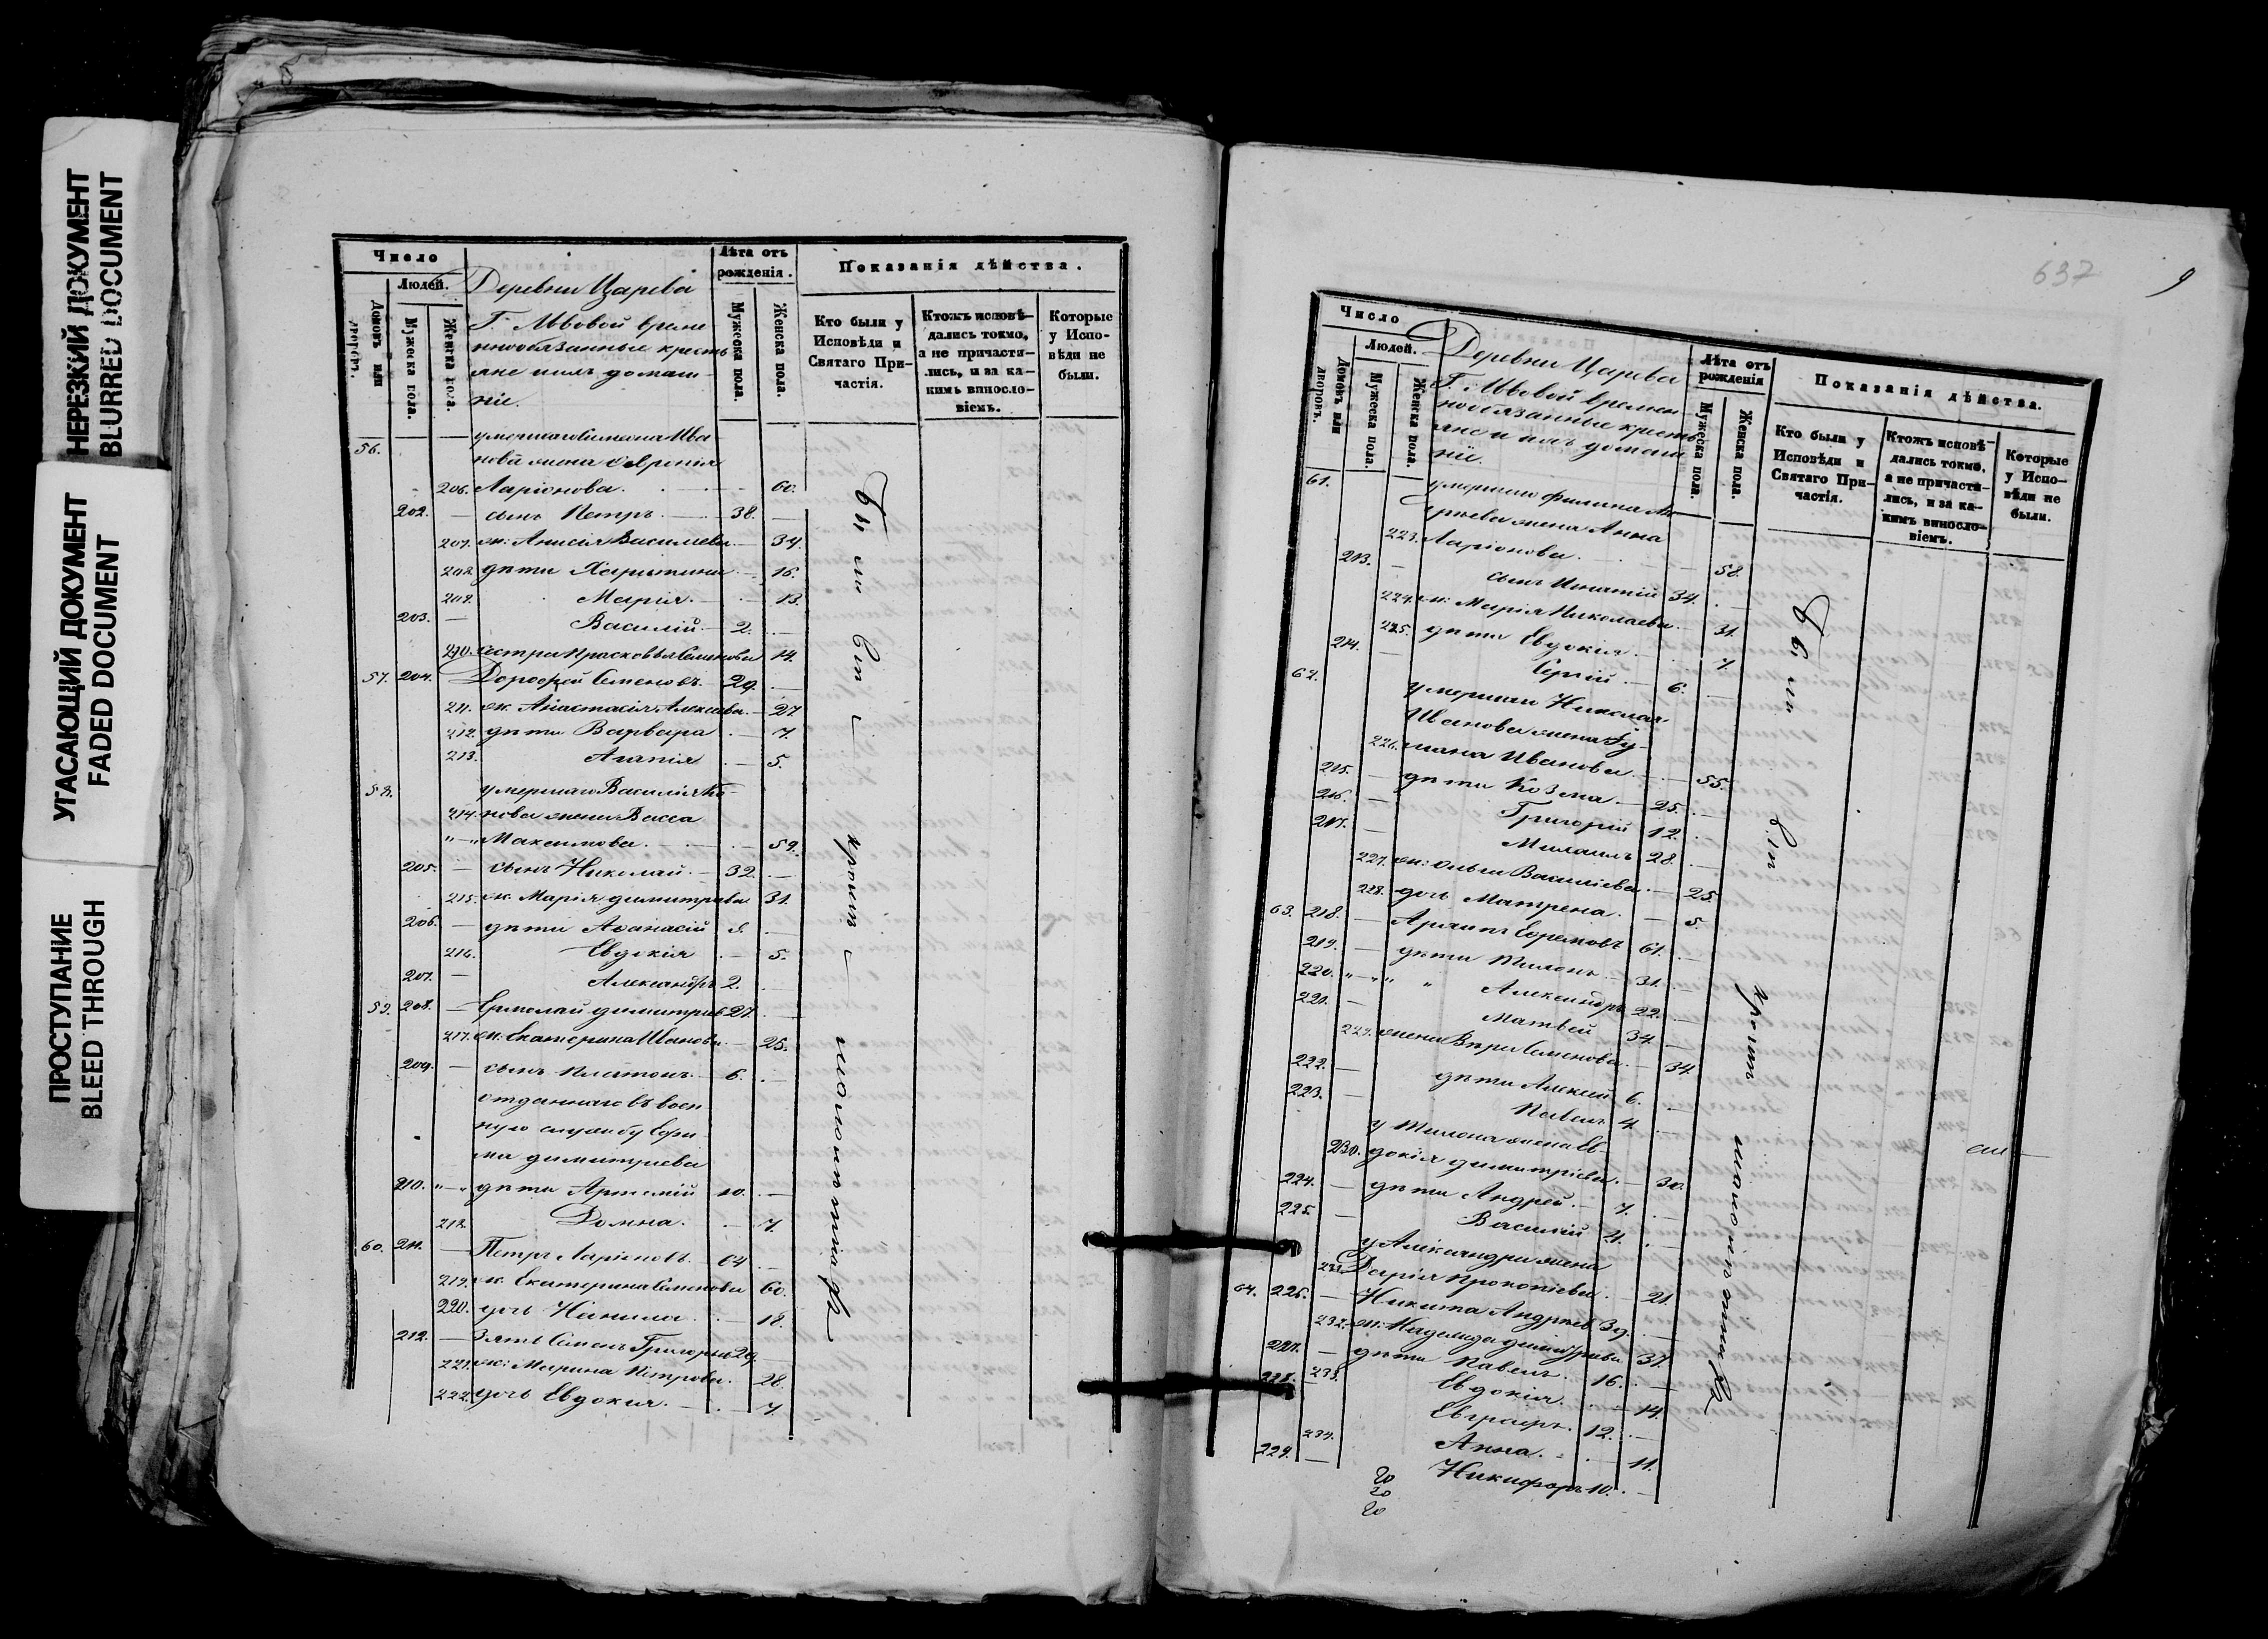 НЕРЕЗКИЙ ДОКУМЕНТ
BLURRED DOCUMENT
УГАСАЮЩИЙ ДОКУМЕНТ
FADED DOCUMENT
ПРОСТУПАНИЕ
BLEED THROUGH
Число
Людей.
Домовъ или дворовъ.
Мужеска пола.
Женска пола.
Деревни Царева
Г. Львовой времен
нообязанные кресть
яне и ихъ домаш-
ніе.
Лѣта отъ рожденія.
Мужеска пола.
Женска пола.
Показанія дѣйства.
Кто были у Исповѣди и Святаго При-
частія.
Ктожъ исповѣ-
дались токмо, а не причасти-
лись, и за ка-
кимъ винословіемъ.
Которые у Испо-
вѣди не были.
56. умершаго Симеона Ива
нова жена
206. Ларіонова. 60.
202. — сынъ Петръ. 38. —
207. ж: Анисія Васильева — 34.
208. дѣти Харитина — 16.
209. Марія. — 13.
203. — Василій. 2. —
210. сестра Прасковья Семенова 14.
57. 204. Дорофей Семеновъ. 29. —
211. ж. Анастасія Алексѣева. — 27
212. дѣти Варвара — 7.
213. Агапія — 5.
58. умершаго Василія
214. нова жена Васса
Максимова. — 59.
205. — сынъ Николай. 32. —
215. ж. Марія Димитріева 31.
206. — дѣти Аѳанасій —
216. Евдокія — 5.
207. — Александръ 2. —
59. 208. — Ермолай Димитріев 27. —
217. ж. Екатерина Иванова — 25.
209. — сынъ Платонъ 6. —
отданнаго въ воен
ную службу Ефи
ма Димитріева
210. дѣти Артемій 10. —
218. Домна. — 7.
60. 211. — Петръ Ларіоновъ. 64 —
219. ж. Екатерина Семенова 60.
220. дочь — 18.
212. — Зять Семенъ Григорьев 29. —
221. ж: Марина Петрова. 28.
222. дочь Евдокія. — 7.
Были вси кромѣ малолѣтнихъ
637
9
Число
Людей.
Домовъ или дворовъ.
Мужеска пола.
Женска пола.
Деревни Царева
Г. Львовой времен
нообязанные кресть
яне и ихъ домаш
ніе.
Лѣта отъ рожденія
Мужеска пола.
Женска пола.
Показанія дѣйства.
Кто были у Исповѣди и Святаго При-
частія.
Ктожъ исповѣ-
дались токмо, а не причасти-
лись, и за ка-
кимъ винословіемъ.
Которые у Испо-
вѣди не были.
61. умершаго Филипа
жена Анна
223. Ларіонова. — 58.
213. — сынъ Игнатій 34. —
224. ж: Марія Николаева — 31.
225. дѣти Евдокія — 7.
214. — Сергій — 6. —
62. умершаго Николая
Иванова жена
226. Иванова — 55.
215. — дѣти Козма — 25. —
216. — Григорій 12. —
217. — Михаилъ 28. —
227. ж: Ольга Василіева — 25.
228. дочь Матрена. — 5.
63. 218. — Архипъ Ефремовъ 61. —
219. — дѣти Тихонъ 31. —
220. Александръ 22. —
221. — Матвей 34. —
229. жена Вѣра Семенова — 34.
222. — дѣти Алексей 6. —
223. — Павелъ 4. —
у Тихона жена Ев-
230. докія Димитріева. — 30.
224. — дѣти Андрей. 7. —
225. — Василій 4. —
у Александра жена
231. Дарія Прокопіева. — 21.
64. 226. — Никита Андреев 39. —
232. ж: Надежда Димитріева 37.
227. — дѣти Павелъ. 16. —
228. 233. Евдокія. — 14.
Евграфъ. 12. —
234. Анна. — 11.
229. — Никифоръ 10. —
Были вси кромѣ малолѣтнихъ
20
20
20